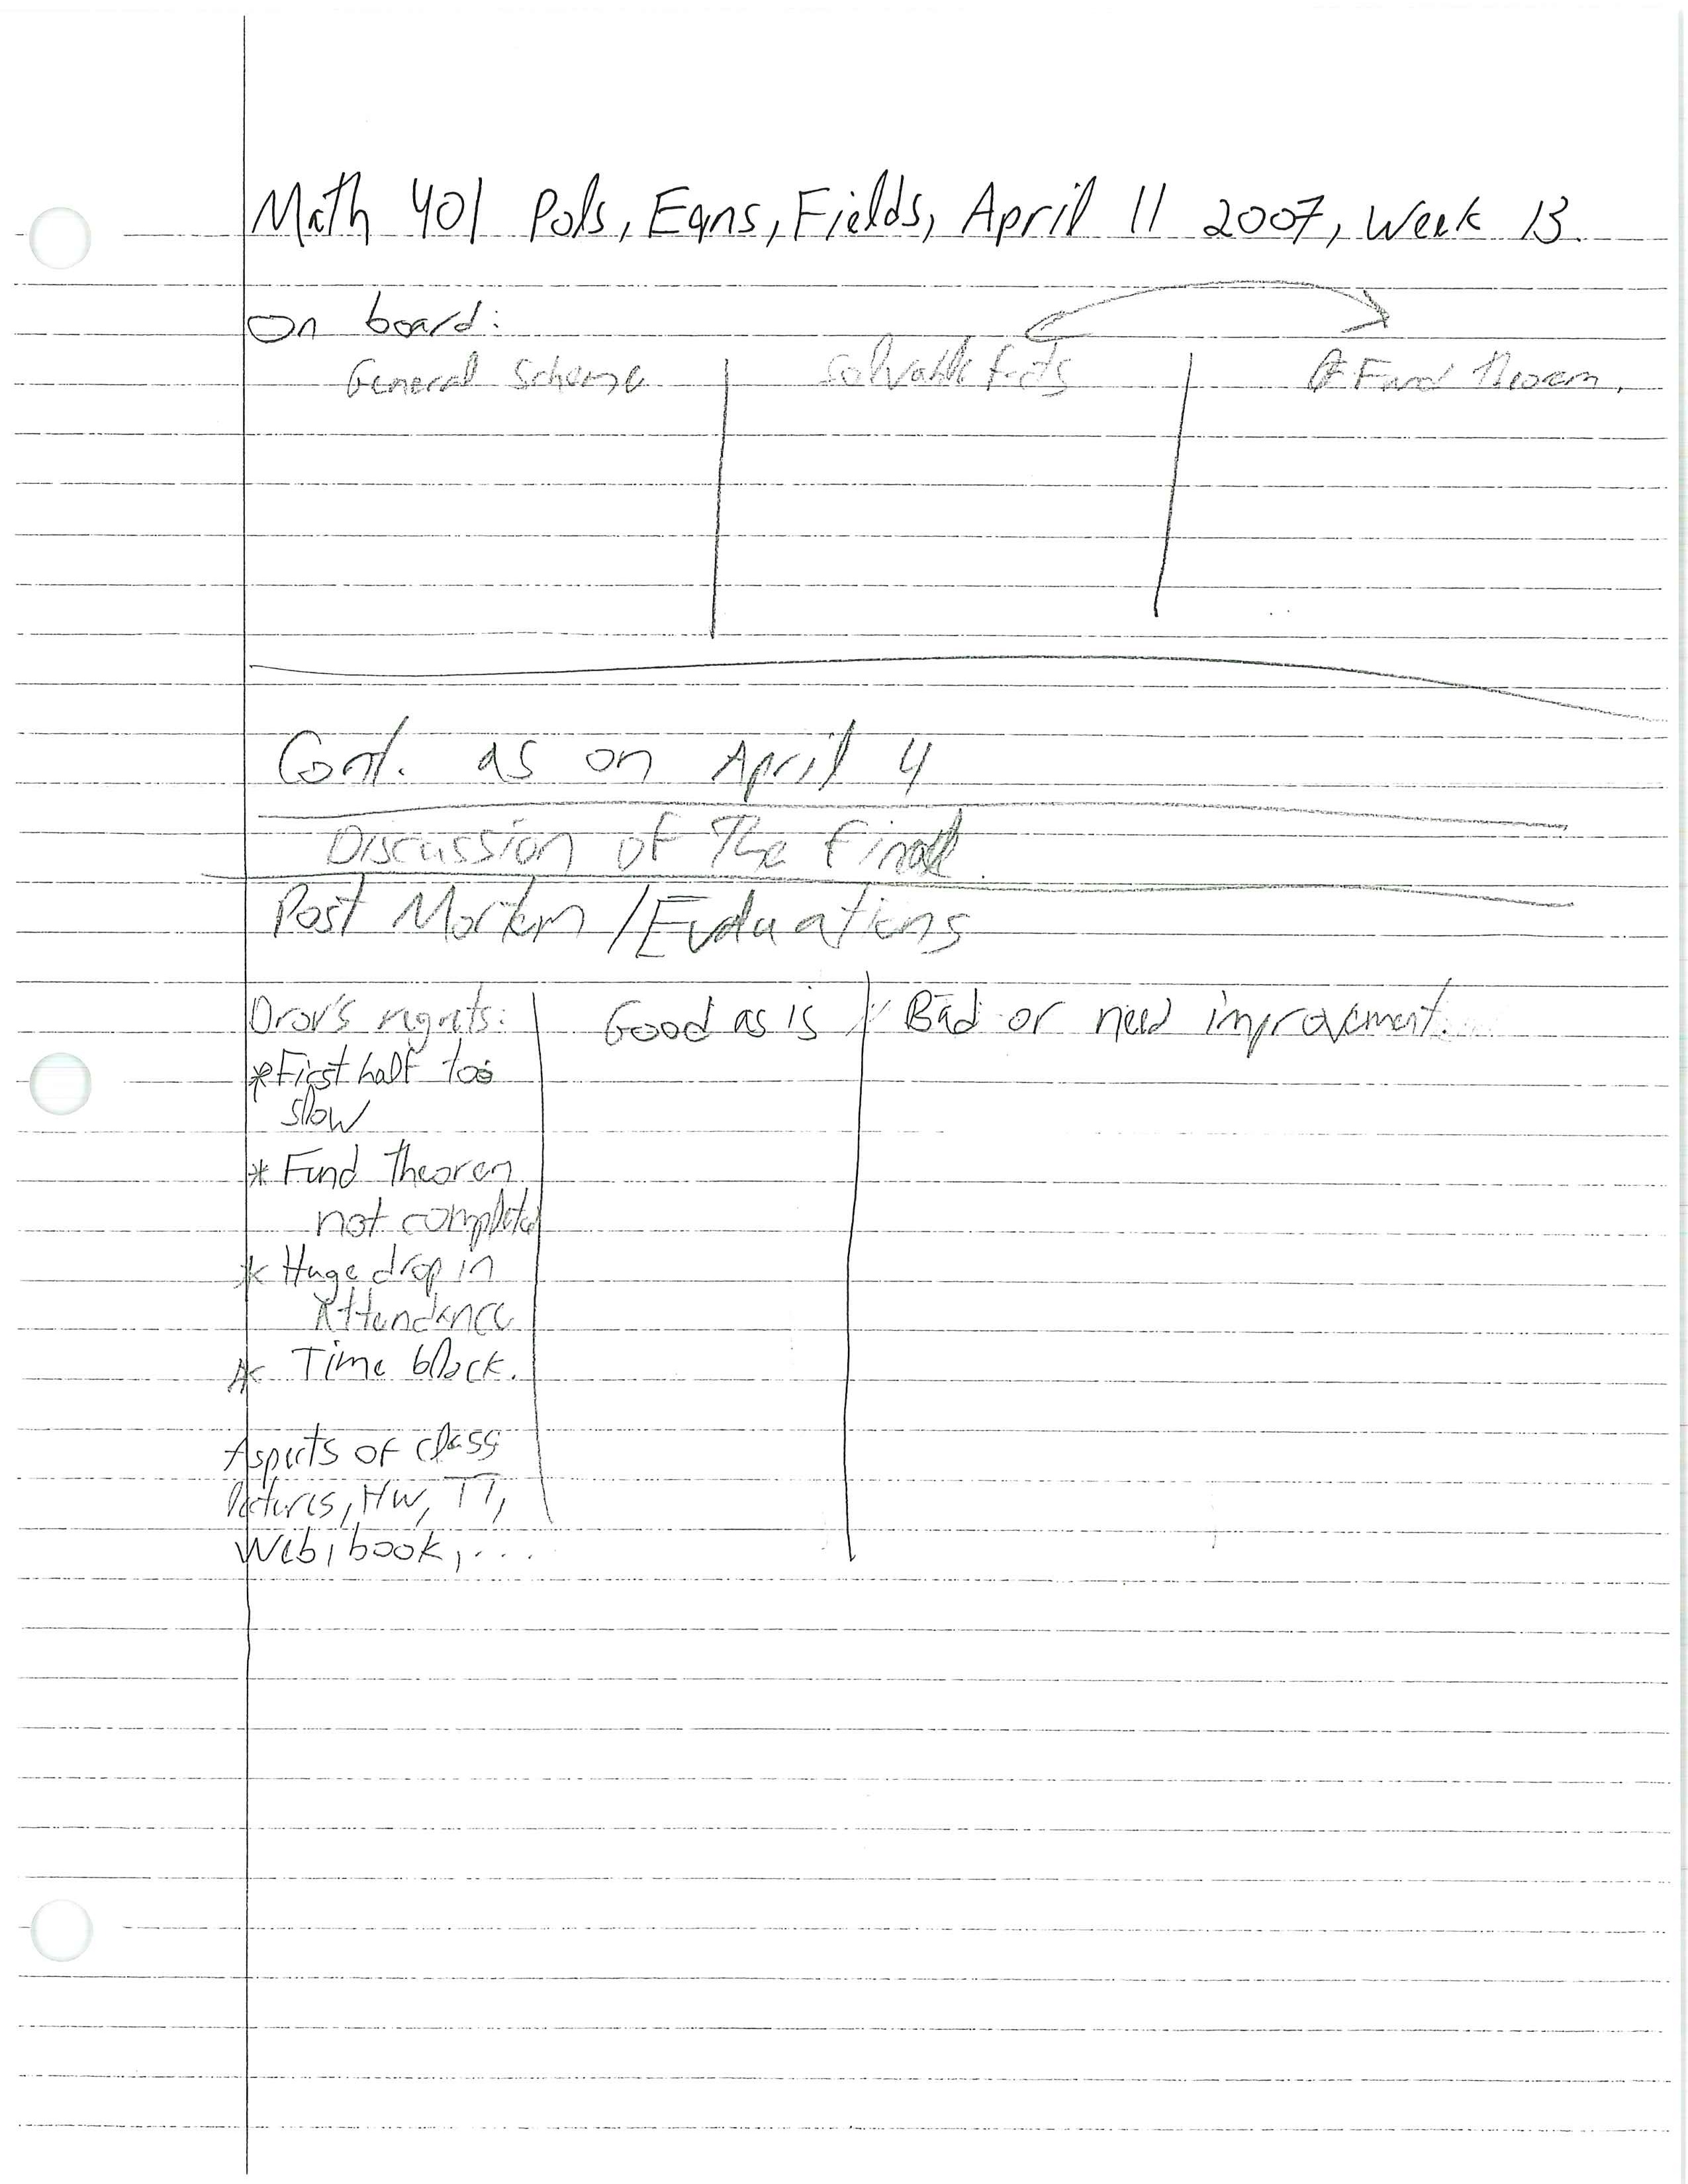 Math 401 Pols, Eqns, Fields, April 11 2007, Week 13.
On board:
General Scheme Solvable facts Fund Theorem.
Cont. as on April 4
Discussion of The Final.
Post Mortem / Evaluations
Dror's regrets: Good as is Bad or need improvement.
* First half too
slow
* Fund Theorem
not completed
* Huge drop in
Attendance
* Time block.
Aspects of class
HW, TT,
Web, book, ...